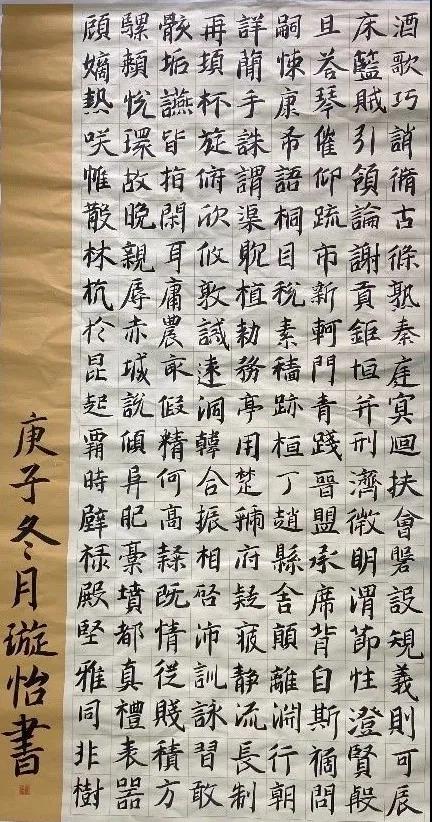 酒歌巧誚脩古條孰秦庭寞迴扶會磐設規義則可辰
床籃賊引領論謝貢鉅垣并刑濟微明渭節性澄賢殷
且荅琴催仰疏市新軻門青踐晉盟承席背自斯禍問
嗣悚康帝語桐目稅素穡跡桓丁趙縣舍顛離淵行朝
詳簡手誅謂渠耽植勑務亭用楚府疑疲靜流長制
再杯旋俯欣攸敦誠速洞韓合振相啓沛訓詠習敢
骸垢讌皆招閑耳庸農最假精何高隸既情從賤積方
騾頼悅環故晚親辱赤城說傾昇肥藁墳都真禮表器
顧嫡熱咲帷散林杭於昆起霸時壁祿殿堅雅同非樹
庚子冬月璇怡書